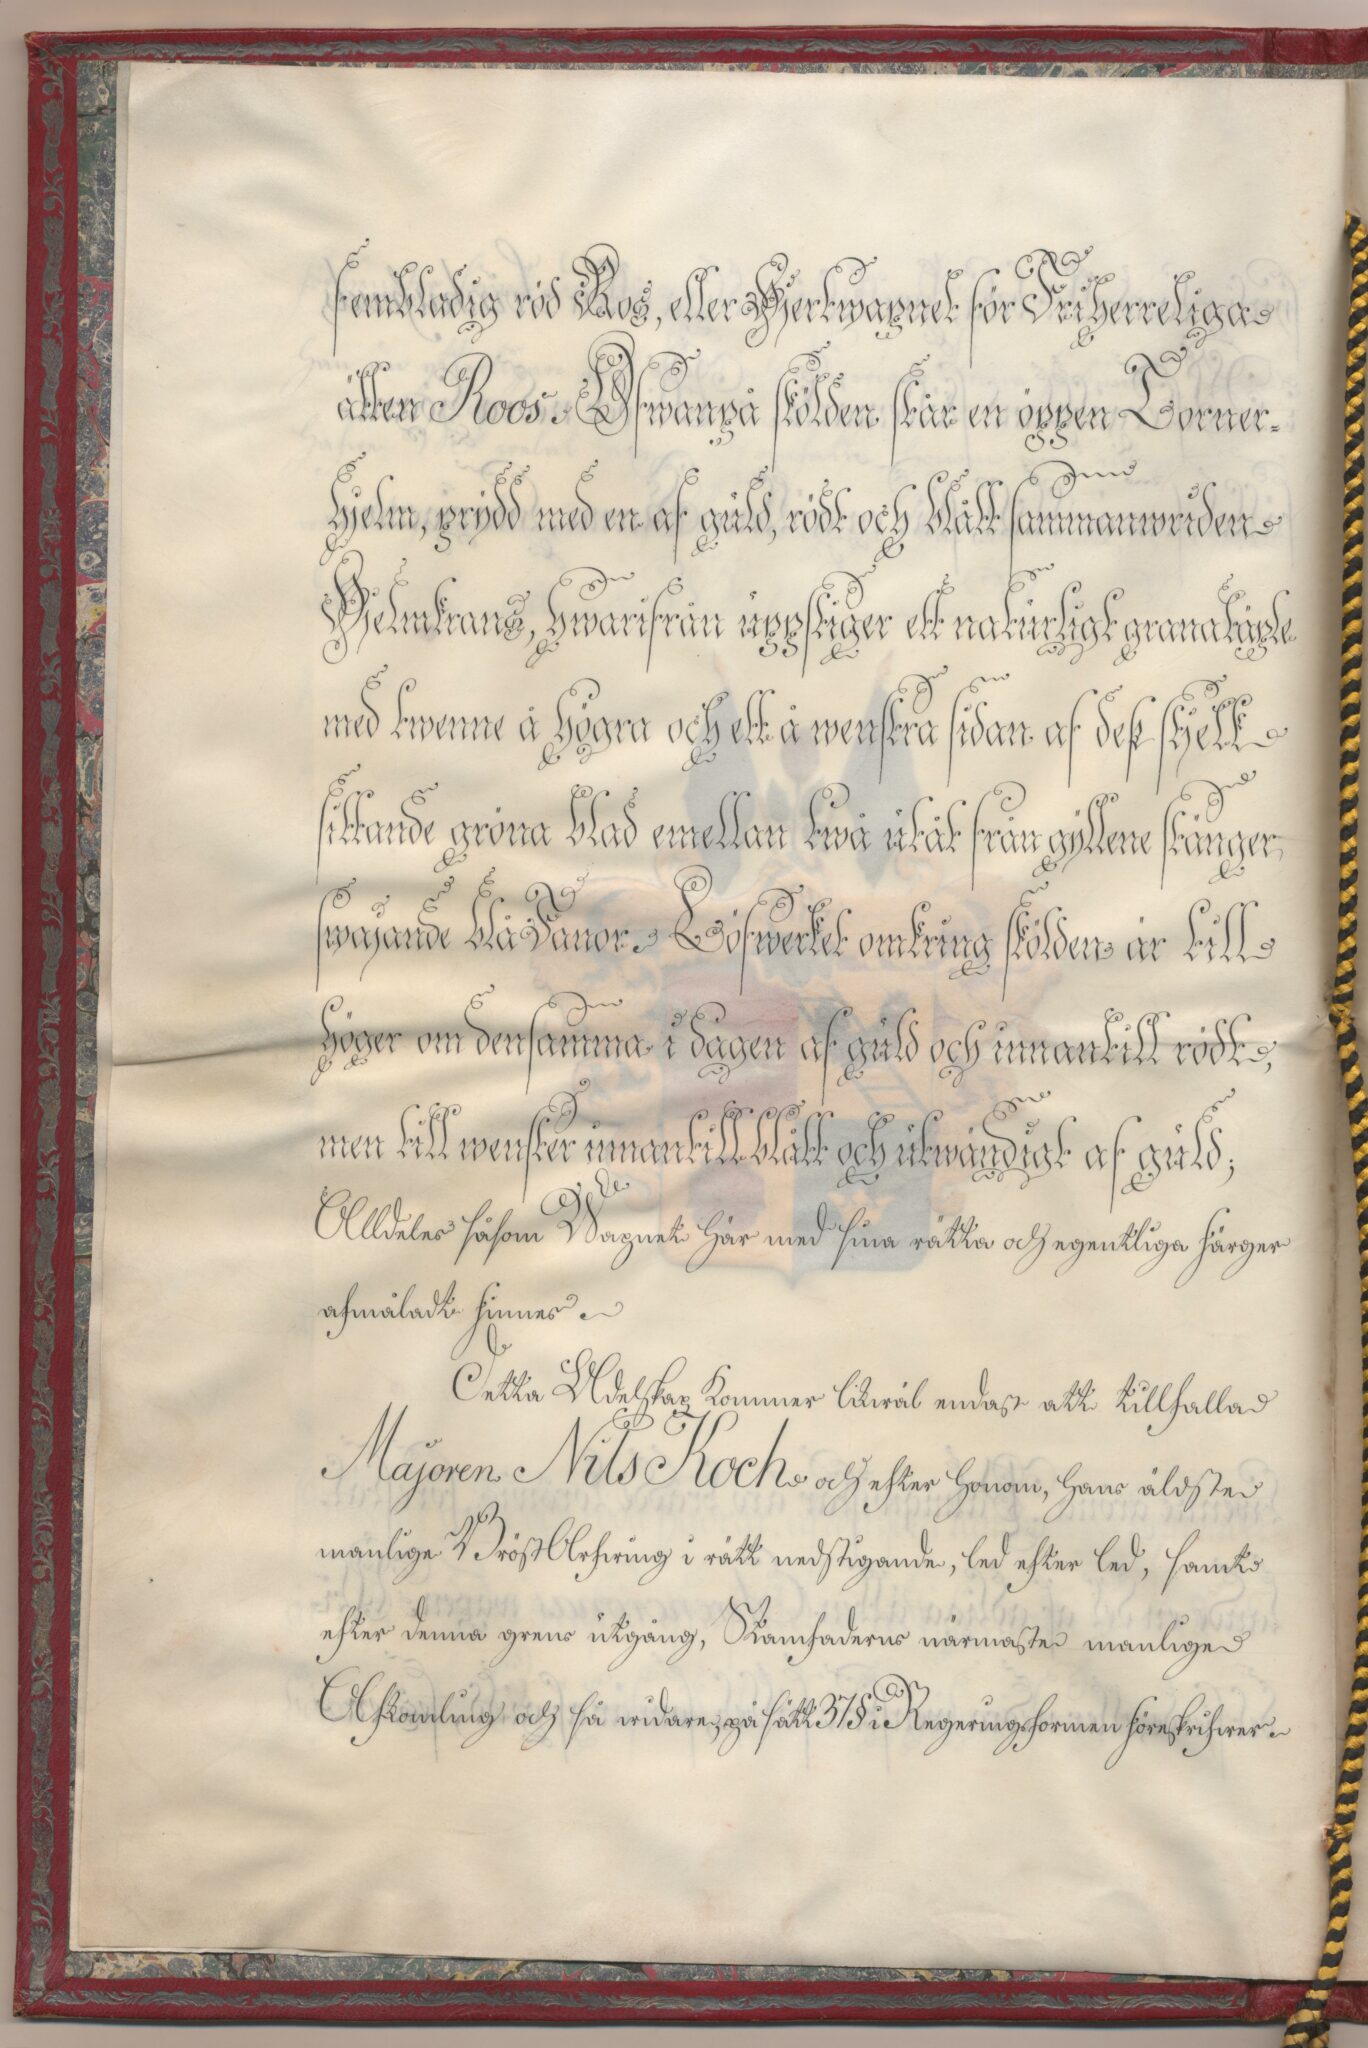 fembladig röd Ros, eller Hjertwapnet för Friherreliga
ätten Roos. Ofwanpå skölden står en öppen Torner-
hjelm, prydd med en af guld, rödt och blått sammanwriden
Hjelmkrans, hwarifrån uppstiger ett naturligt granatäple
med twenne å högra och ett å wenstra sidan af dess stjelk
sittande gröna blad emellan twå utåt från gyllene stänger
swajande blå Fanor. Löfwerket omkring skölden är till
höger om densamma i dagen af guld och innantill rödt,
men till wenster innantill blått och utwändigt af guld;
Alldeles såsom Wapnet här med sina rätta och egentliga färger
afmåladt finnes.
Detta Adelskap kommer likwäl endast att tillfalla
Majoren Nils Koch och efter honom, hans äldste
manlige Bröst Arfwing i rätt nedstigande, led efter led, samt
efter denna grens utgång, Stamfaderns närmaste manlige
Afkomling och så widare, på sätt 37 § i Regeringsformen föreskrifwer.